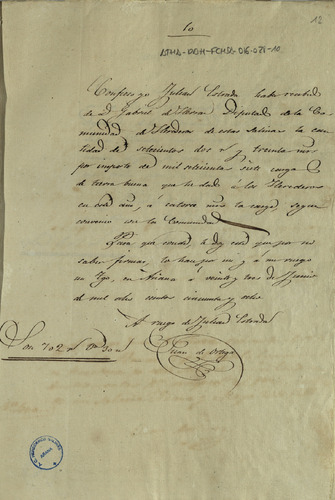 10
18
ATHA-DEH-FCHSA-016-078-10
Confieso yo Julian Estrada haber recibido
de D. Gabriel de Diputado de la Co-
munidad de de estas Salinas la can-
tidad de setecientos dos r.s y treinta mrs
por importe de mil setecientas siete cargas
de buena que he dado á los Herederos
en este año, á catorce mrs la carga segun
convenio con la Comunidad
Para que conste le doy este que por no
saber firmar, lo hace por mi y á mi ruego
un tgo, en Añana á veinte y tres de Junio
de mil ocho cientos cincuenta y ocho
A ruego de Julian Estrada
Juan de Ortega
Son 702 r.s 30 m